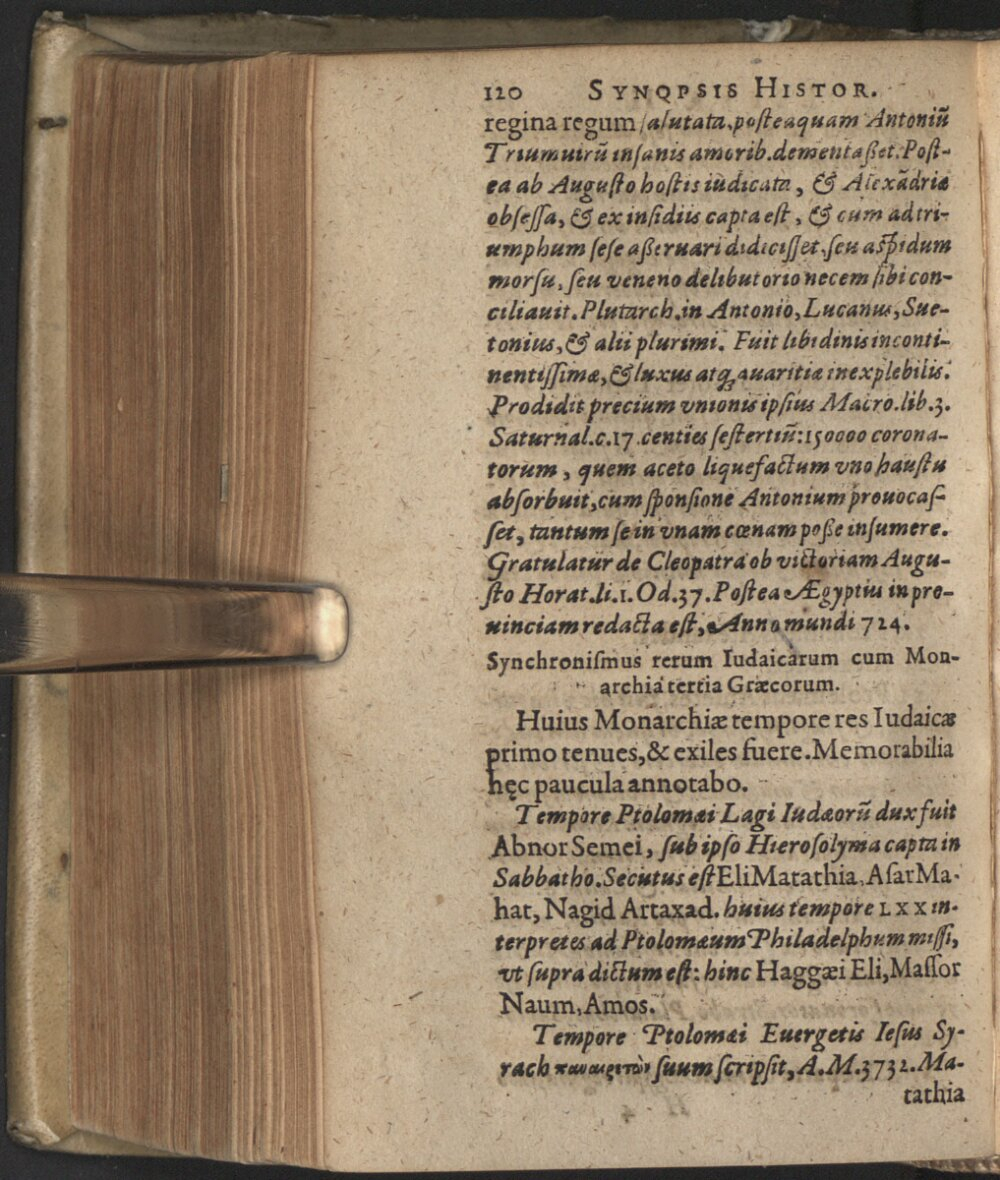 120 SYNOPSIS HISTOR.
regina regum ſalutata, poſteaquam Antoniũ
Triumuirũ inſanis amorib. dementaßet. Poſt-
ea ab Auguſto hoſtis iudicata, & Alexãdria
obſeſſa, & ex inſidiis capta eſt, & cum ad tri-
umphum ſeſe aßeruari didiciſſet, ſeu aſpidum
morſu, ſeu veneno delibutorio necem ſibi con-
ciliauit. Plutarch. in Antonio, Lucanus, Sue-
tonius, & alii plurimi. Fuit libidinis inconti-
nentiſſimæ, & luxus atq; auaritiæ inexplebilis.
Prodidit precium vnionis ipſius Macro. lib. 3.
Saturnal. c. 17. centies ſeſtertiũ: 150000 corona-
torum, quem aceto liquefactum vno hauſtu
abſorbuit, cum ſponſione Antonium prouocaſ-
ſet, tantum ſe in vnam cœnam poße inſumere.
Gratulatur de Cleopatra ob victoriam Augu-
ſto Horat. li. 1. Od. 37. Poſtea Ægyptus in pro-
uinciam redacta eſt, Anno mundi 724.
Synchroniſmus rerum Iudaicarum cum Mon-
archia tertia Græcorum.
Huius Monarchiæ tempore res Iudaicæ
primo tenues, & exiles fuere. Memorabilia
hęc paucula annotabo.
Tempore Ptolomæi Lagi Iudæorũ dux fuit
Abnor Semei, ſub ipſo Hieroſolyma capta in
Sabbatho. Secutus eſt Eli Matathia, Aſar Ma-
hat, Nagid Artaxad. huius tempore LXX in-
terpretes ad Ptolomæum Philadelphum miſſi,
vt ſupra dictum eſt: hinc Haggæi Eli, Maſſor
Naum, Amos.
Tempore Ptolomæi Euergetis Ieſus Sy-
rach παναρετὸν ſuum ſcripſit, A. M. 3732. Ma-
tathia